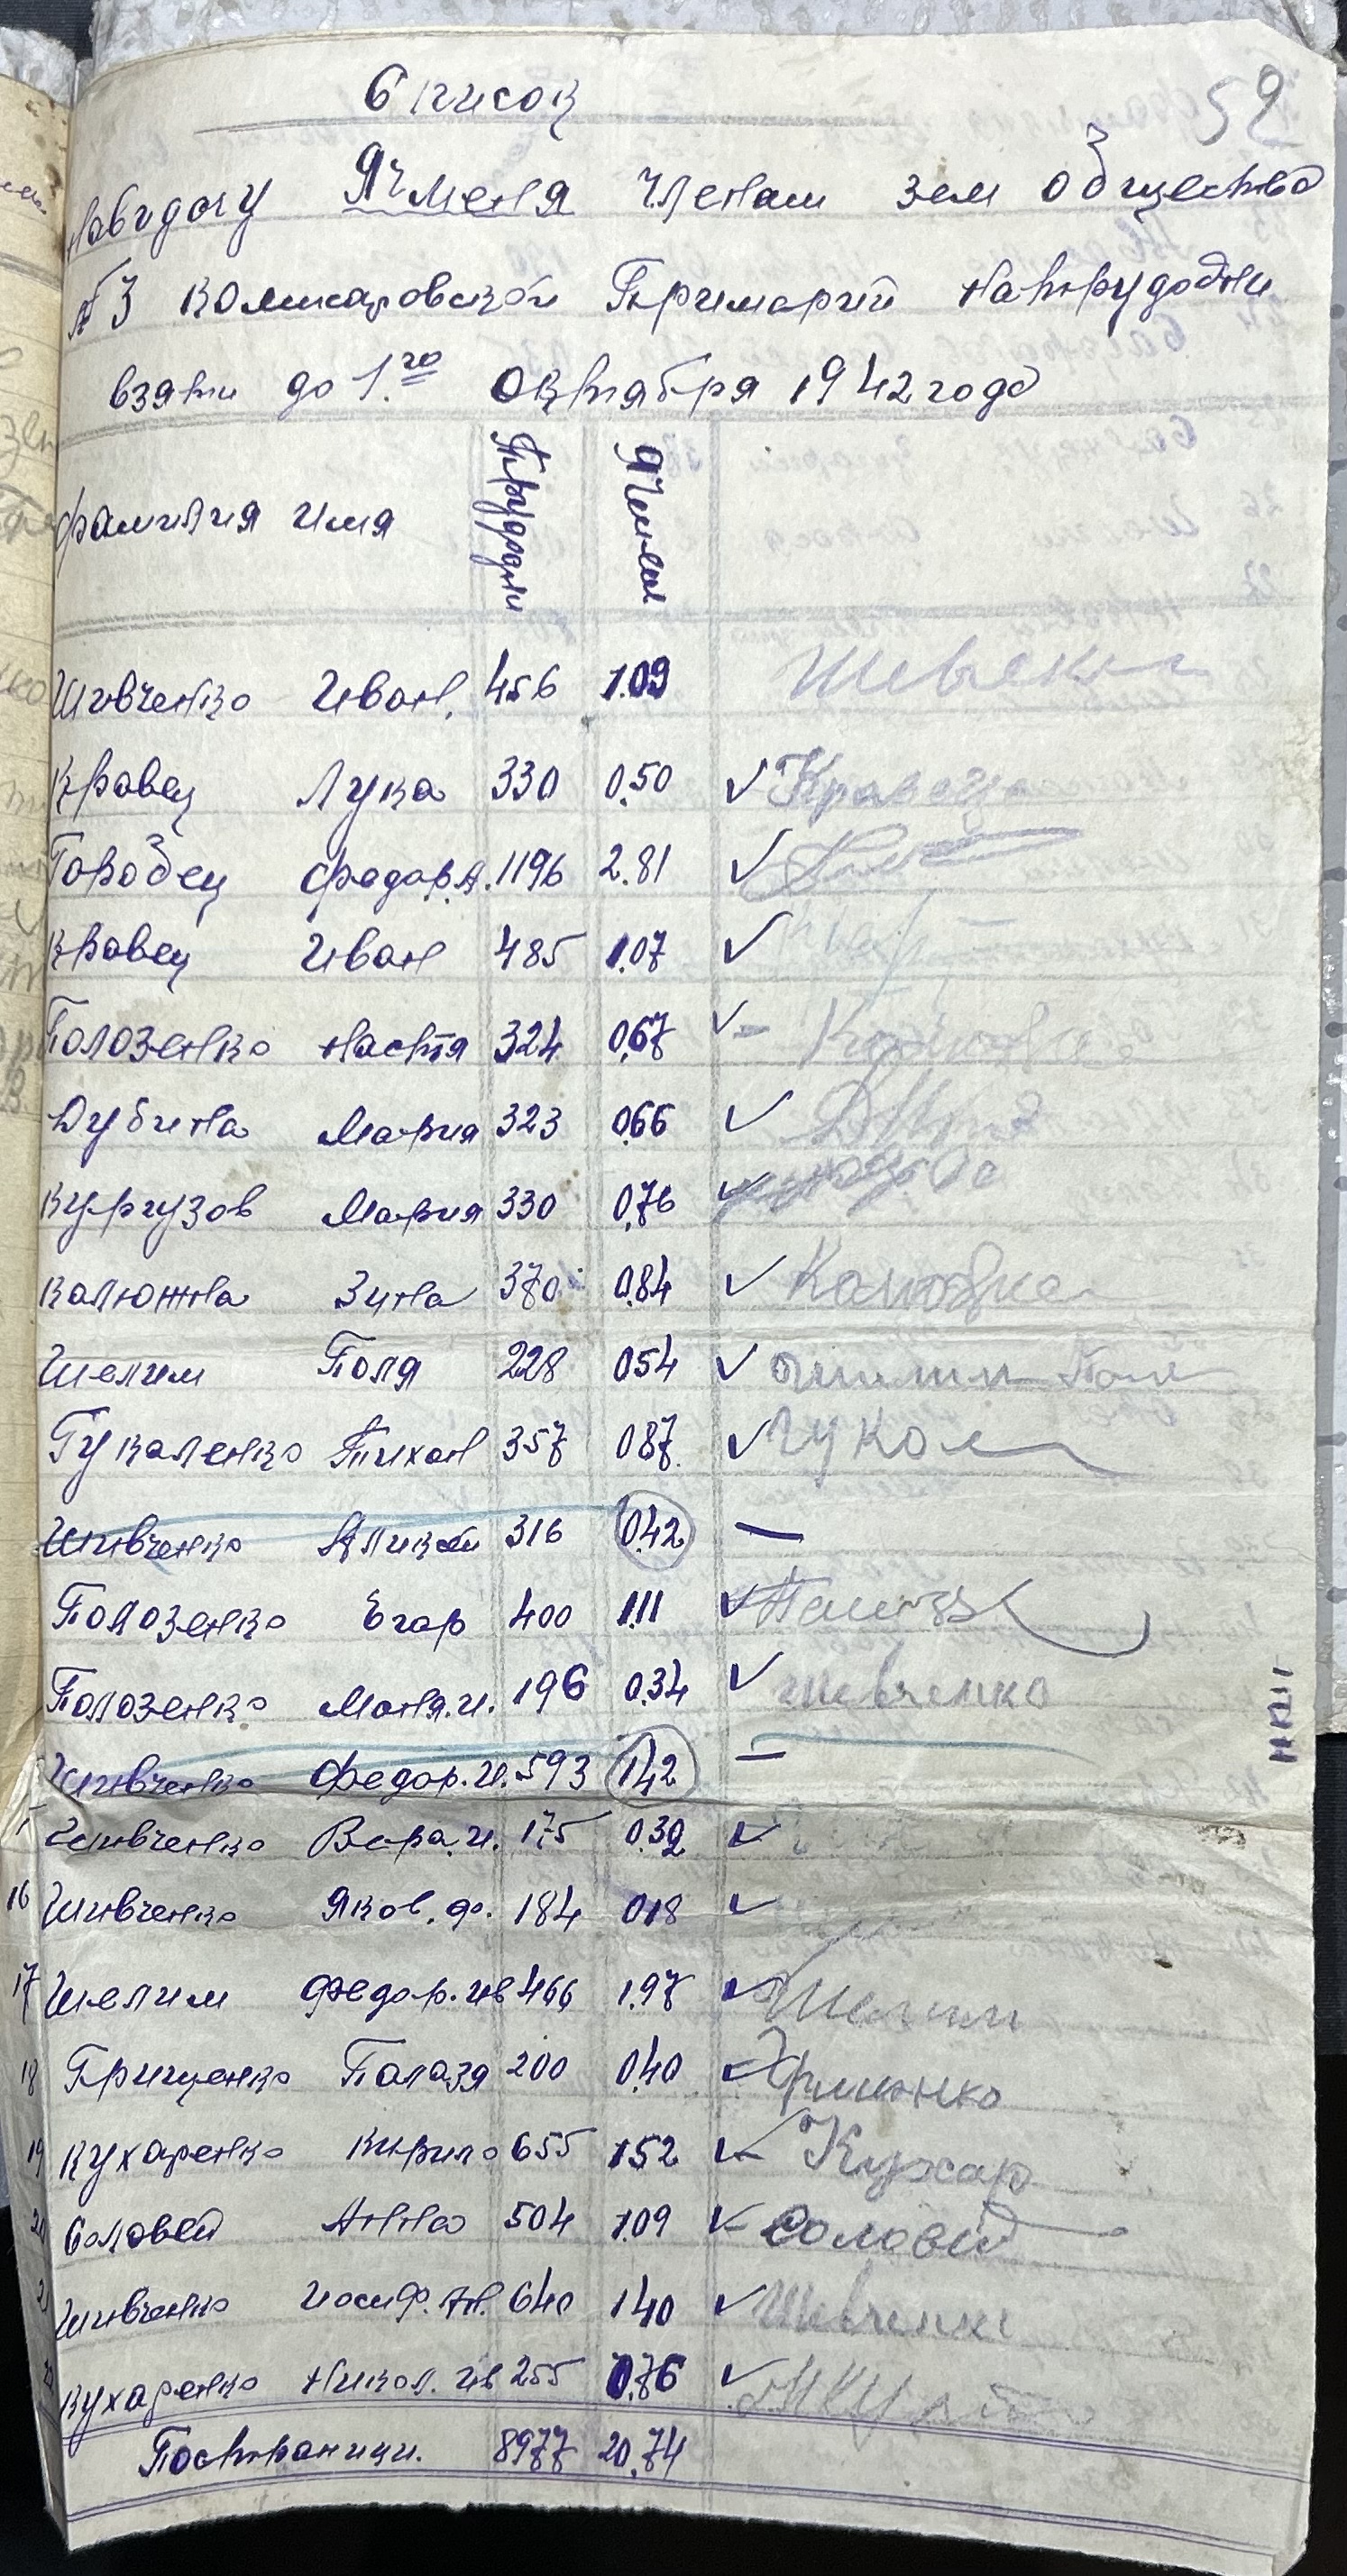 Список
52
На выдачу Ячменя членам зем общества
№3 Комисаровской Примарии натрудодни
взяти до 1.го Октября 1942 года
Фамилия Имя Трудодни Ячмень
Шивченко Иван. 456 1.09
Кравец Лука 330 0.50 ✓ Кравец
Городец Федор.А. 1196 2.81 ✓
Кравец Иван 485 1.07 ✓
Полозенко Настя 324 0.67 ✓
Дубина Мария 323 0.66 ✓
Кургузов Мария 330 0.76 ✓
Калюжна Зина 370 0.84 ✓
Шелим Поля 228 0.54 ✓
Гукаленко Тихон 357 0.87. ✓ Гукал
Шивченко Аликсей 316 0.42 —
Полозенко Егар 400 1.11 ✓
Полозенко Маня.И. 196 0.34 ✓ Шевченко
Шивченко Федор.И. 593 1.42 —
Шивченко Вера.И. 175 0.32 ✓
16 Шивченко Яков.Ф. 184 0.18 ✓
17 Шелим Федор.Ив 466 1.97 ✓ Шелим
18 Грищенко Палазя 200 0.40 ✓
19 Кухаренко Кирило 655 1.52 ✓ Кухар
20 Соловей Анна 504 1.09 ✓ Соловей
21 Шивченко Иосиф. 640 1.40 ✓ Шевченко
Кухаренко Никол. Ив 255 0.76 ✓
Постраници. 8977 20.74